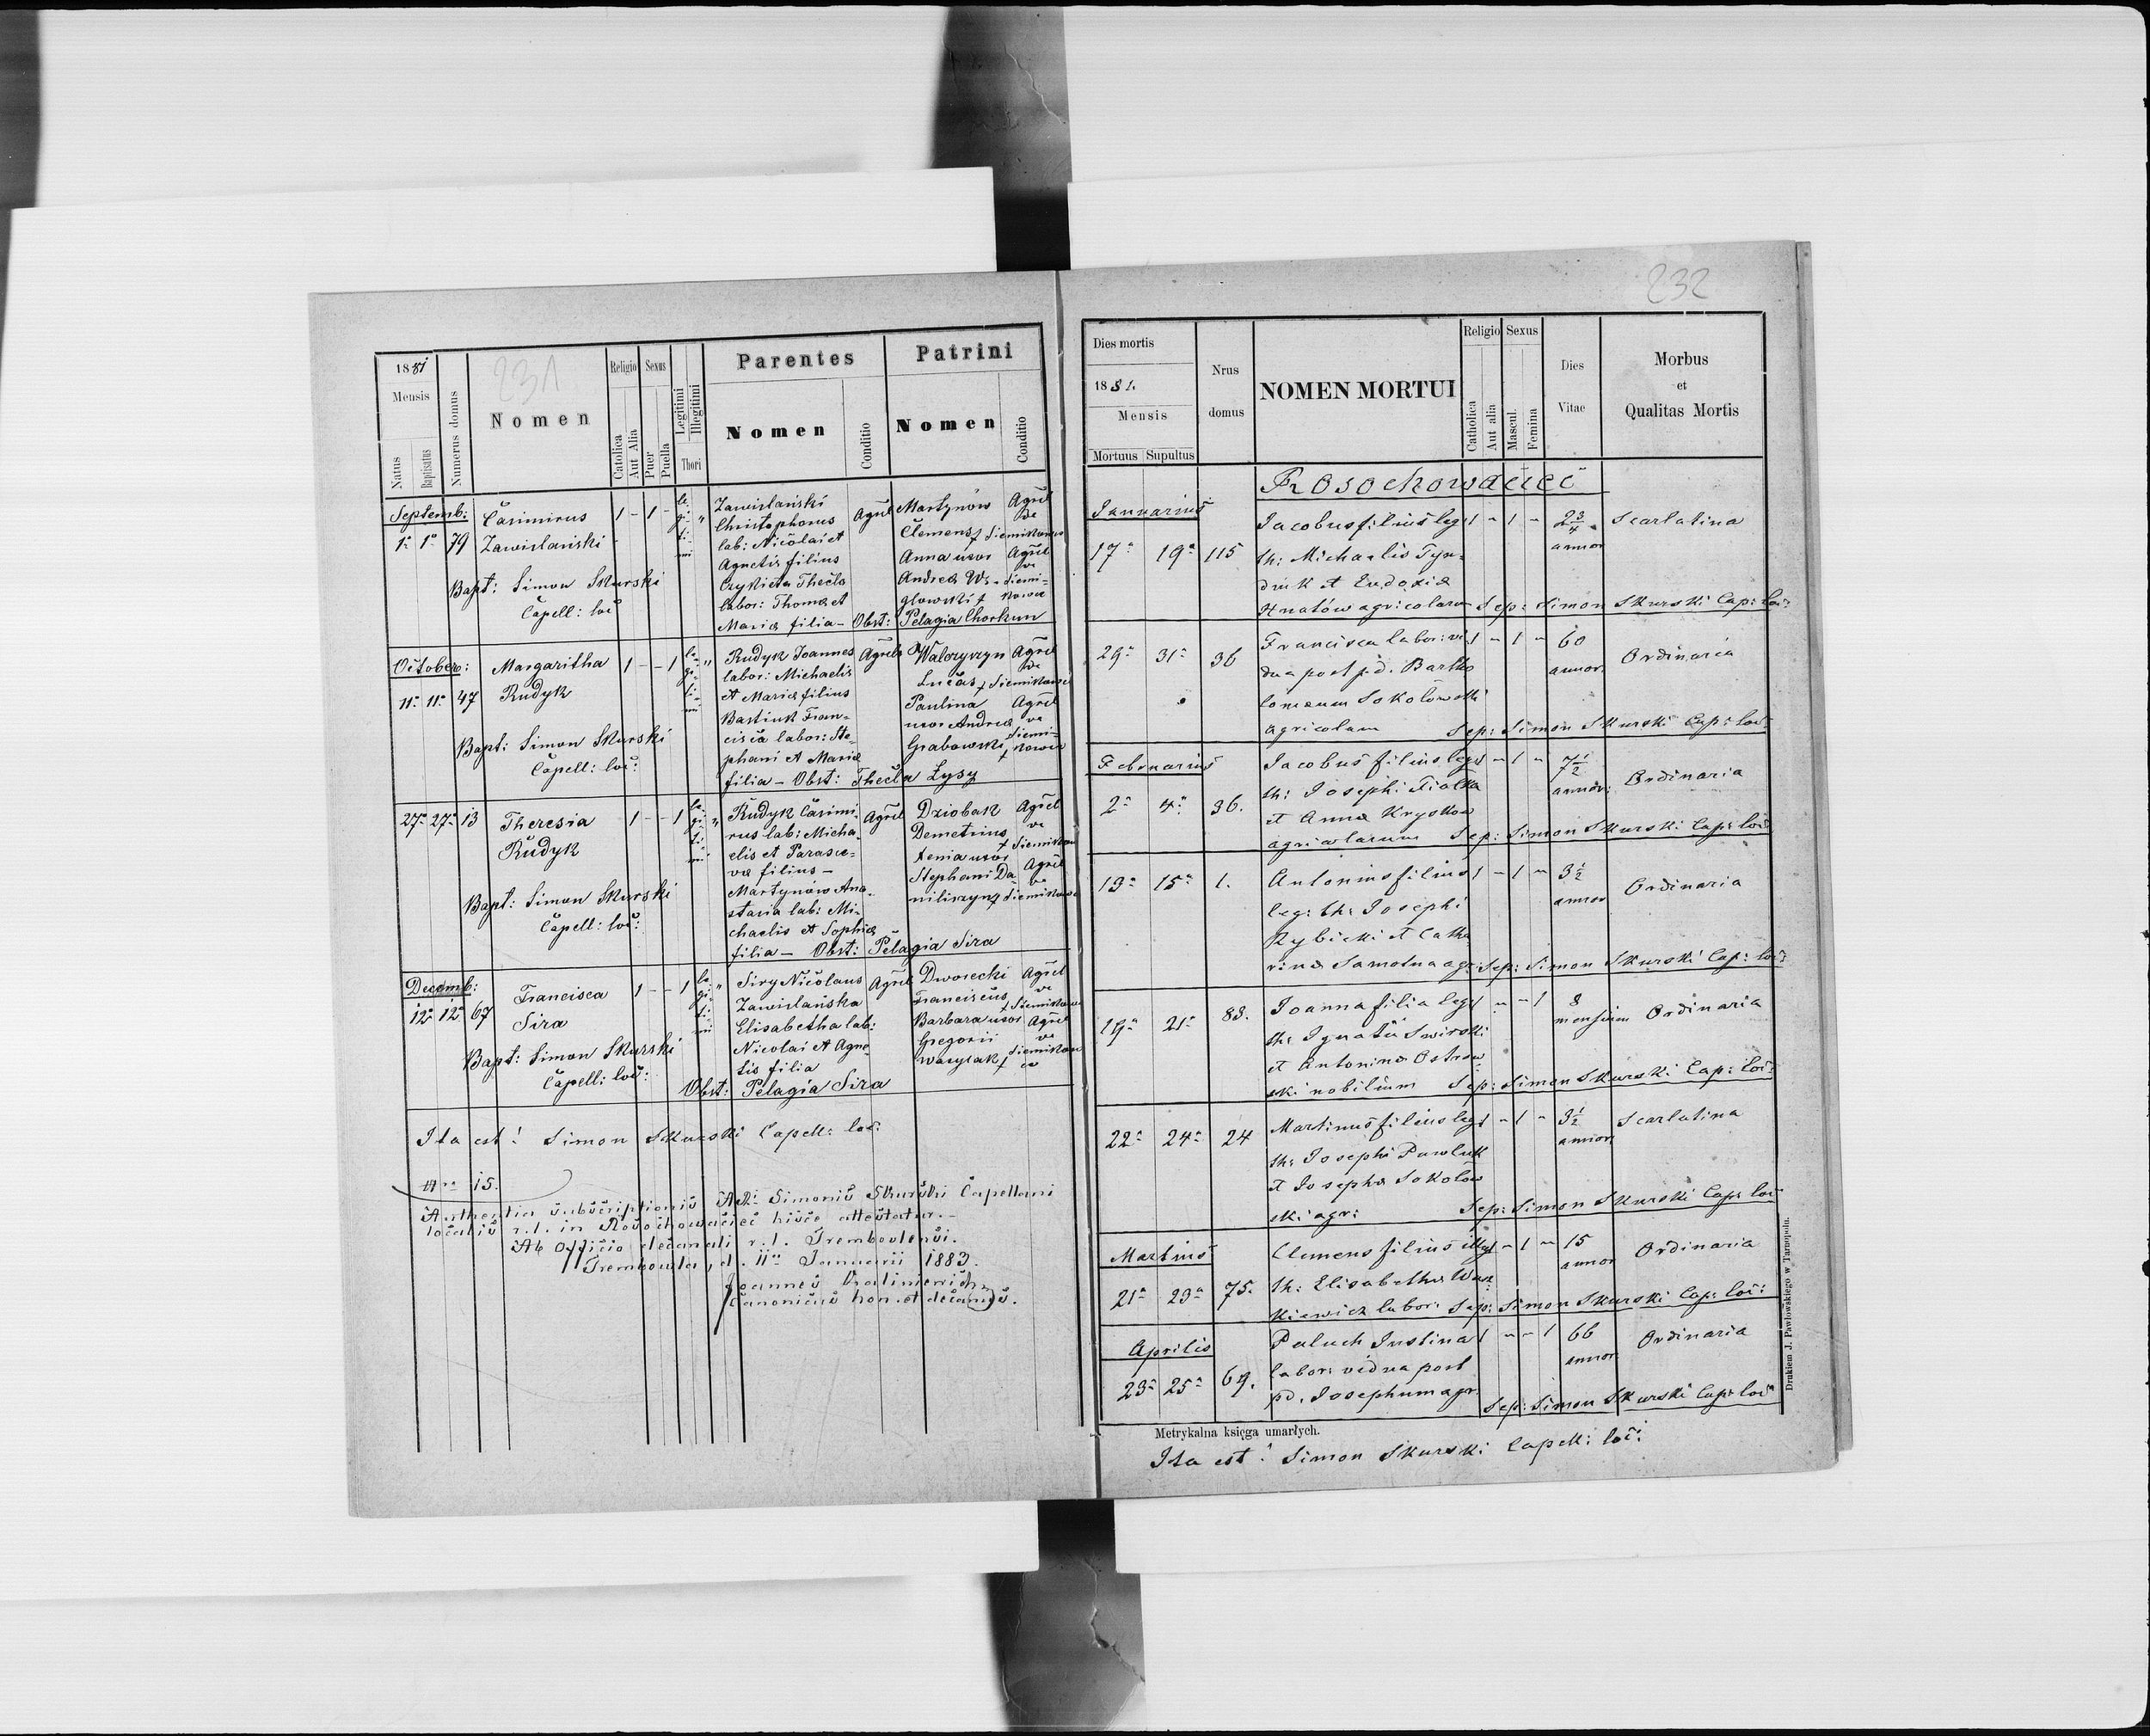 1881
Mensis
Natus
Baptisatus
Numerus domus
231
Nomen
Religio
Catolica
Aut Alia
Sexus
Puer
Puella
Legitimi
Illegitimi
Thori
Parentes
Nomen
Conditio
Patrini
Nomen
Conditio
Septemb:
1a 1a 79
Casimirus
Zawislański
1 - 1 -
le-
gi-
ti-
mi
Bapt: Simon Skurski
Capell: loc:
Zawislański
Christophorus
lab: Nicolai et
Agnetis filius
Thecla
labor: Thoma et
Maria filia - Obst: Pelagia Chorkun
Agricl
Martynów
Clemens
Anna uxor
Andrea
Agricl
Siemikowce
October:
11a 11a 47
Margaritha
Rudyk
1 - - 1
le-
gi-
ti-
mi
Bapt: Simon Skurski
Capell: loc:
Rudyk Joannes
labor: Michaelis
et Maria filius
Bartiuk Fran-
cisca labor: Ste-
phani et Maria
filia - Obst: Thecla Łysy
Agricl
Walczyszyn
Lucas
Paulina
uxor Andrea
Grabowski
27a 27a 13
Theresia
Rudyk
1 - - 1
le-
gi-
ti-
mi
Bapt: Simon Skurski
Capell: loc:
Rudyk Casimi-
rus lab: Micha-
elis et Parasce-
va filius -
Martynów Ana-
stasia lab: Mi-
chaelis et Sophia
filia - Obst: Pelagia Sira
Agricl
Dziobak
Demetrius
Xenia uxor
Stephani Da-
niliszyn
Decemb:
12a 12a 67
Francisca
Sira
1 - - 1
le-
gi-
ti-
mi
Bapt: Simon Skurski
Capell: loc:
Siry Nicolaus
Zawislańska
Elisabetha lab:
Nicolai et Agne-
tis filia
Obst: Pelagia Sira
Agricl
Dworecki
Franciscus
Barbara uxor
Gregorii
Wasylak
Ita est: Simon Skurski Capell: loc:
Nro 15.
Authentia subscriptionis Adm: Simonis Skurski Capellani
localis r.l. in Rosochowaciec hisce attestatur.-
Ab Officio decanali r.l. Trembovlensi.
Trembowla, d. 11a Januarii 1883.
Joannes
Canonicus hon. et decanus.
232
Dies mortis
1881.
Mensis
Mortuus Supultus
Nrus
domus
NOMEN MORTUI
Religio
Catholica
Aut alia
Sexus
Mascul.
Femina
Dies
Vitae
Morbus
et
Qualitas Mortis
Rosochowaciec
Januarius
17a 19a 115
Jacobus filius leg:
th: Michaelis Tyn-
druk et Eudoxia
Hnatów agricolarum Sep: Simon Skurski Cap: loc:
1 - 1 -
2 3/4
annor
Scarlatina
29a 31a 36
Francisca labor: vi-
dua post p.d. Bartho
lomeum Sokolowski
agricolam Sep: Simon Skurski Cap: loc:
1 - 1 -
60
annor.
Ordinaria
Februarius
2a 4a 36.
Jacobus filius leg:
th: Josephi Fiolka
et Anna Kryskow
agricolarum Sep: Simon Skurski Cap: loc:
1 - 1 -
7 1/2
annor:
Ordinaria
13a 15a 1.
Antonius filius
leg: th: Josephi
Rybicki et Catha
rina Samotna agr: Sep: Simon Skurski Cap: loc:
1 - 1 -
3 1/2
annor
Ordinaria
19a 21a 83.
Joanna filia leg:
th: Ignatii Swirski
et Antonina Ostrow
ski nobilium Sep: Simon Skurski Cap: loc:
1 - - 1
8
mensium
Ordinaria
22a 24a 24
Martinus filius leg:
th: Josephi Pawluk
et Josepha Sokolow
ski agr: Sep: Simon Skurski Cap: loc:
1 - 1 -
3 1/2
annor:
Scarlatina
Martius
21a 23a 75.
Clemens filius illeg:
th: Elisabetha Wasz
kiewicz labor: Sep: Simon Skurski Cap: loc:
1 - 1 -
15
annor
Ordinaria
Aprilis
23a 25a 69.
Paluch Justina
labor: vidua post
pd. Josephum agr.
Sep: Simon Skurski Cap: loc:
1 - - 1
66
annor
Ordinaria
Drukiem J. Pawłowskiego w Tarnopolu.
Metrykalna księga umarłych.
Ita est: Simon Skurski Capell: loc: